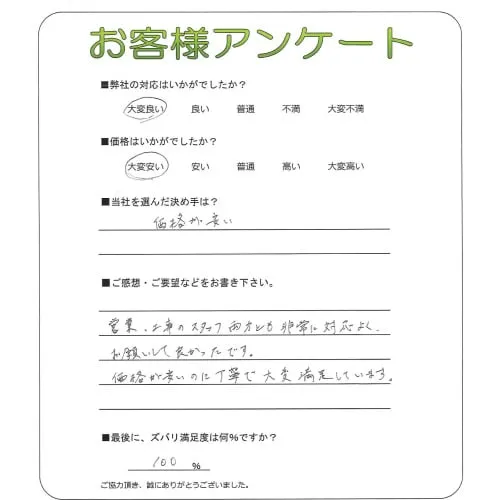 お客様アンケート
■弊社の対応はいかがでしたか？
大変良い 良い 普通 不満 大変不満
■価格はいかがでしたか？
大変安い 安い 普通 高い 大変高い
■当社を選んだ決め手は？
価格が安い
■ご感想・ご要望などをお書き下さい。
営業、工事のスタッフ両方とも非常に対応よく、
お願いして良かったです。
価格が安いのに丁寧で大変満足しています。
■最後に、ズバリ満足度は何％ですか？
100 ％
ご協力頂き、誠にありがとうございました。